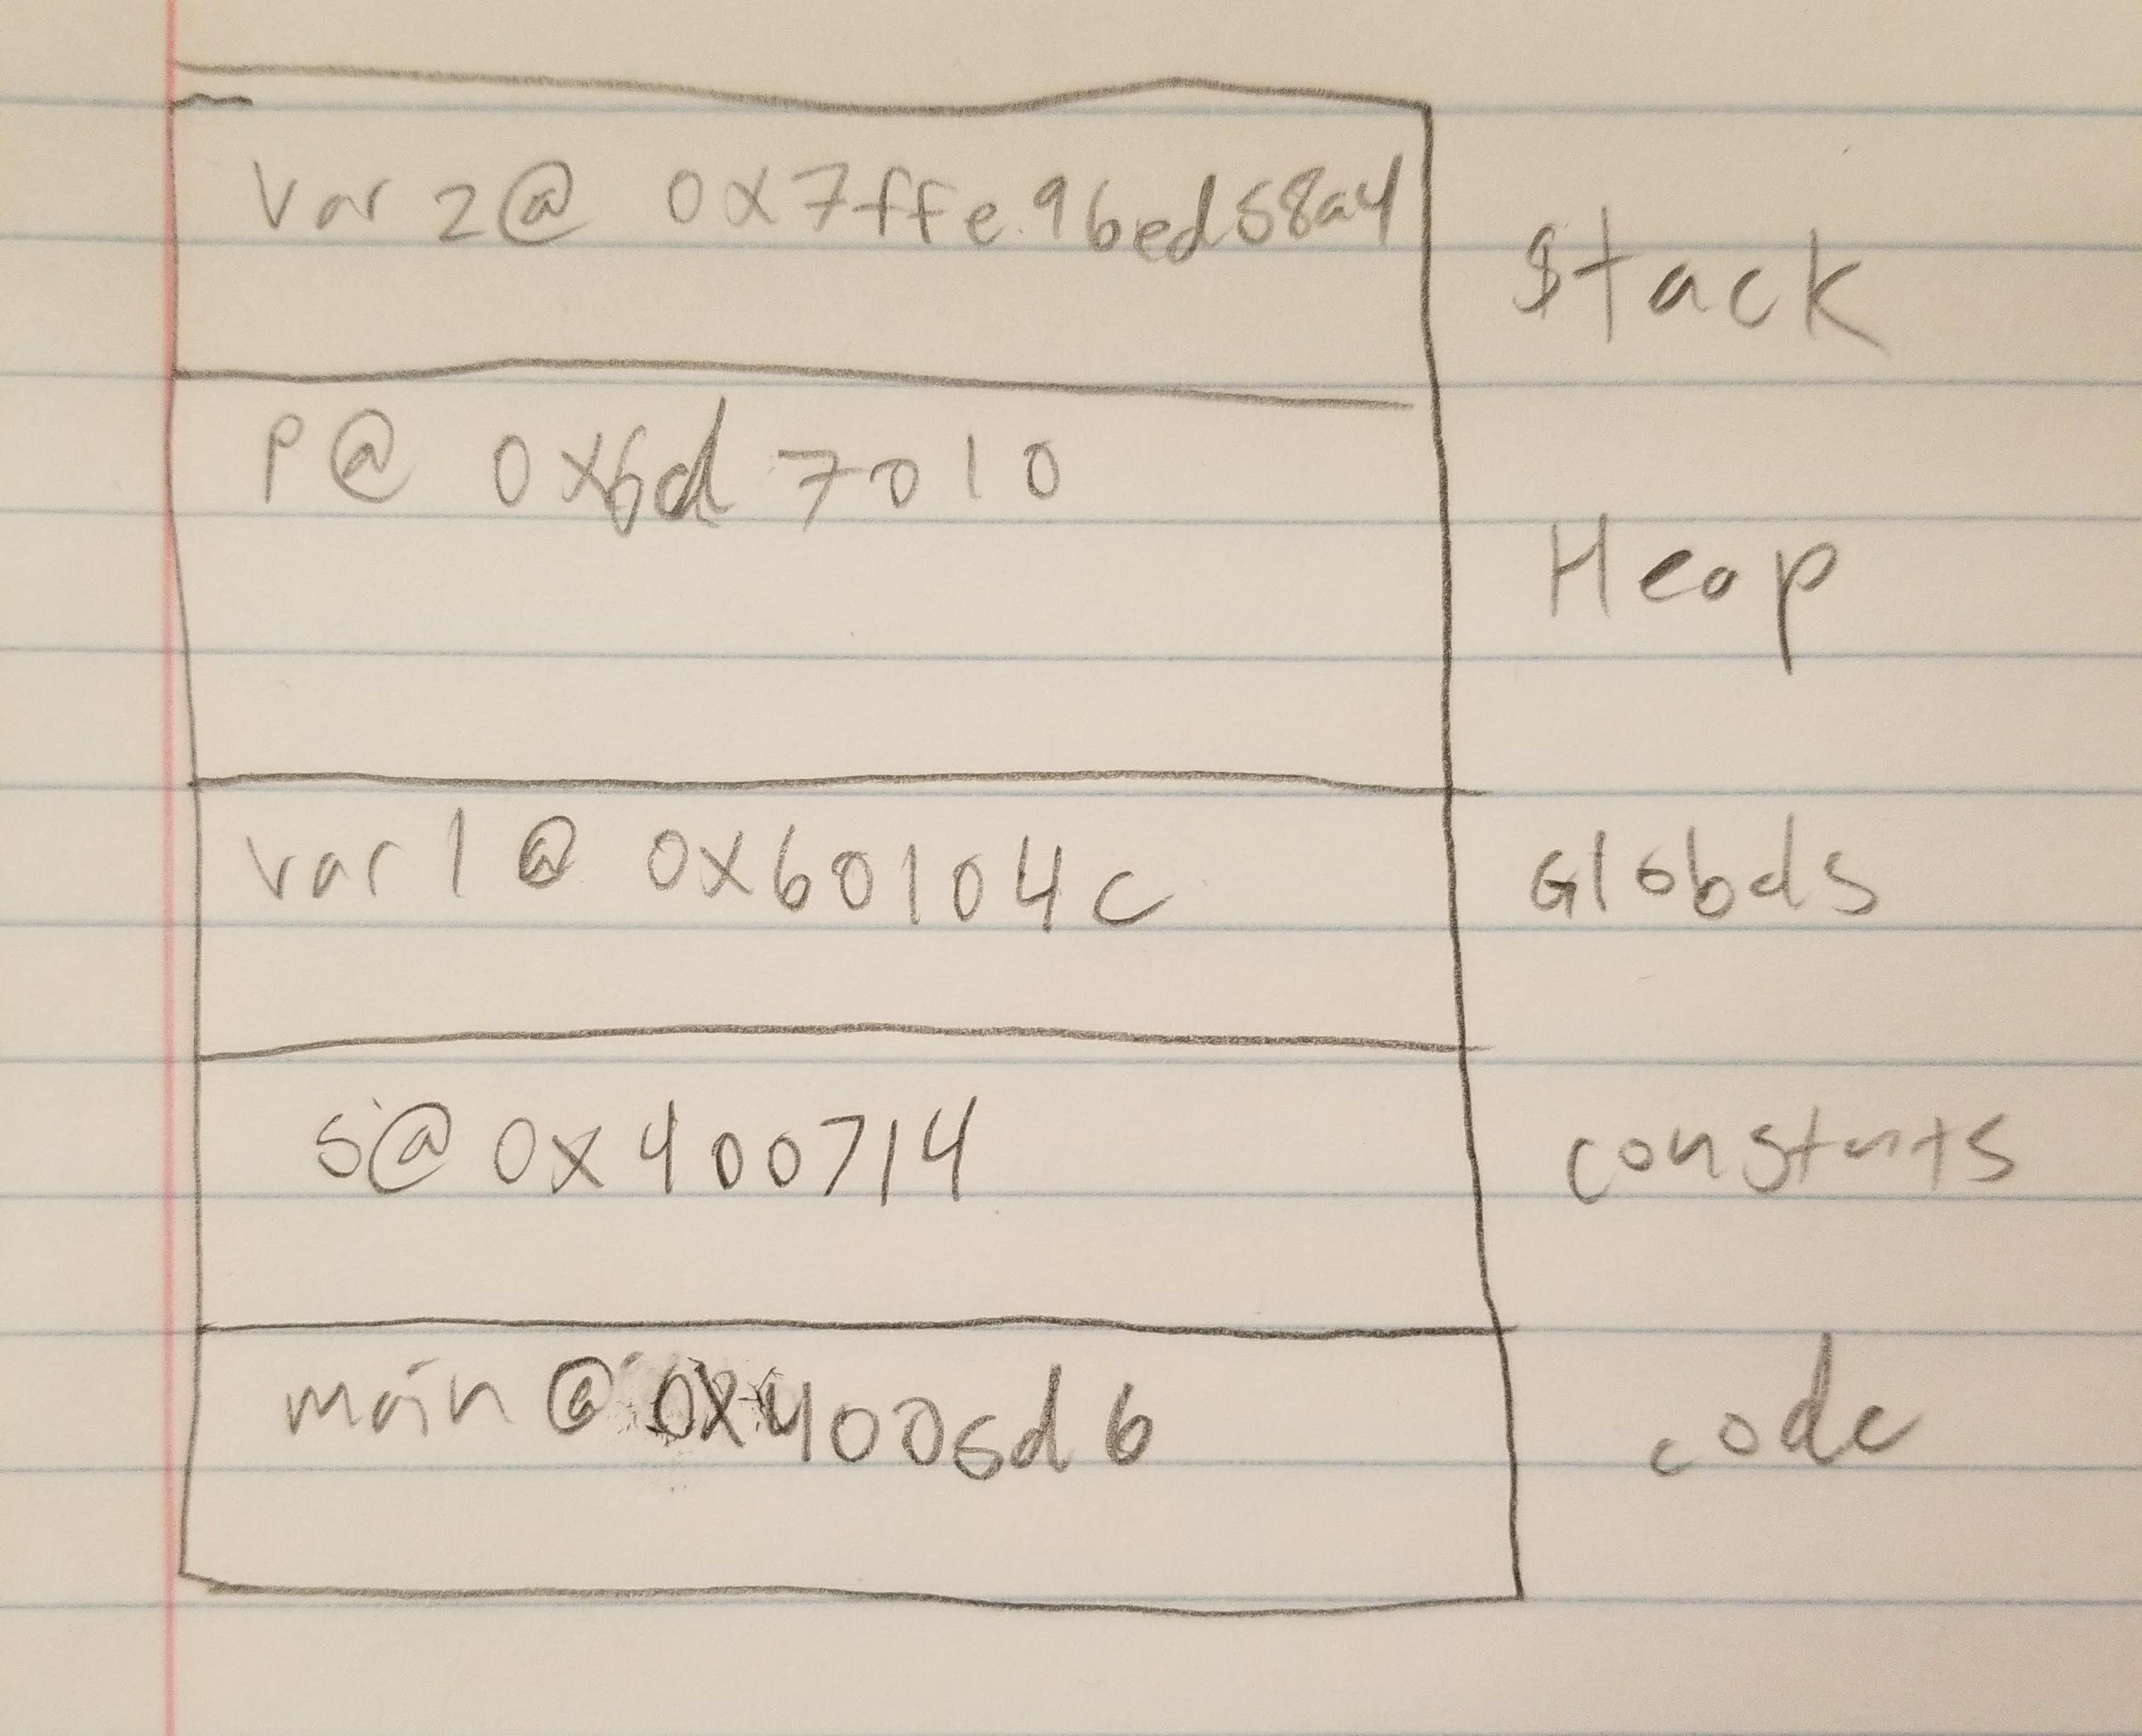 var 2 @ 0x7ffe96ed58a4
Stack
P @ 0x6d7010
Heap
var 1 @ 0x60104c
Globals
s @ 0x400714
constants
main @ 0x4005d6
code